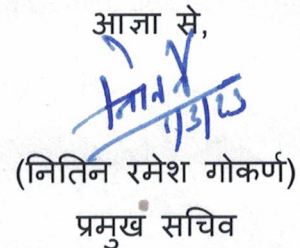 आज्ञा से,
1/3/23
(नितिन रमेश गोकर्ण)
प्रमुख सचिव